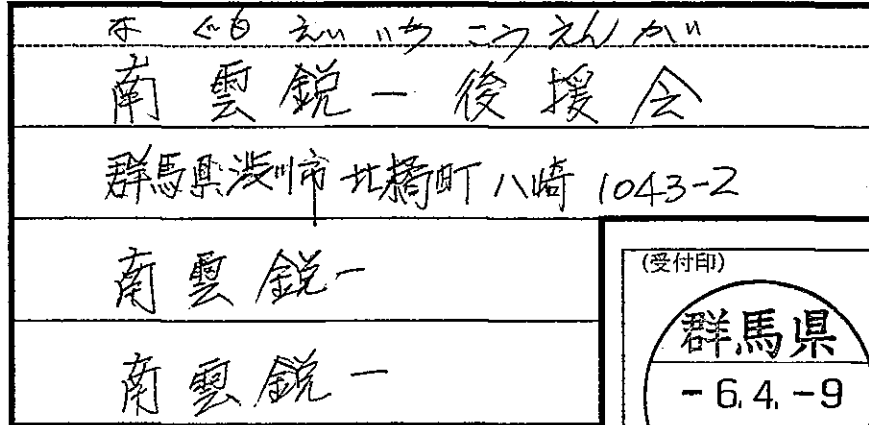 なぐもえいいちこうえんかい
南雲鋭一後援会
群馬県渋川市北橘町八崎1043-2
南雲鋭一
(受付印)
群馬県
南雲鋭一
-6.4.-9